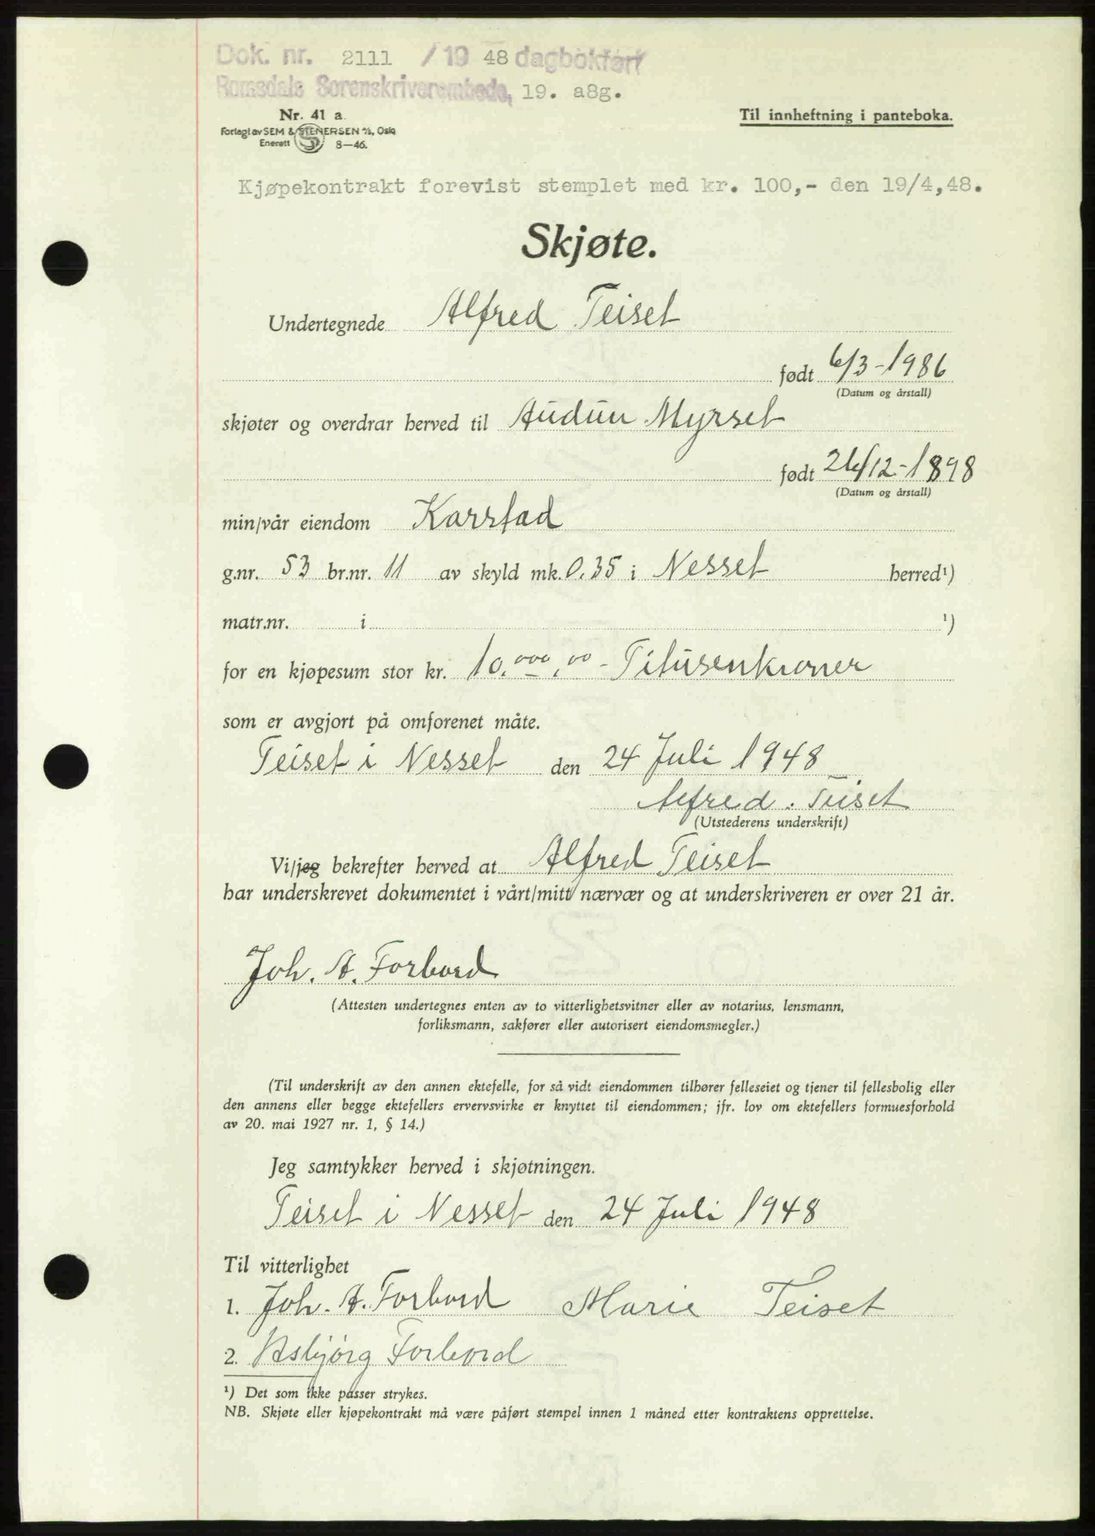 Dok. nr. 2111 / 19 48 dagbokført
Romsdals Sorenskriverembede, 19. a8g.
Nr. 41 a.
Til innheftning i panteboka.
Forlagt av SEM & STENERSEN A/S, Oslo
Enerett 8—46.
Kjøpekontrakt forevist stemplet med kr. 100,- den 19/4,48.
Skjøte.
Undertegnede Alfred Teiset
født 6/3-1986
(Datum og årstall)
skjøter og overdrar herved til Audun Myrset
født 26/12-1898
(Datum og årstall)
min/vår eiendom Karstad
g.nr. 53 br.nr. 11 av skyld mk. 0.35 i Nesset herred¹)
matr.nr. i ¹)
for en kjøpesum stor kr. 10.000,00 - Titusenkroner
som er avgjort på omforenet måte.
Teiset i Nesset den 24 Juli 1948
Alfred. Teiset
(Utstederens underskrift)
Vi/jeg bekrefter herved at Alfred Teiset
har underskrevet dokumentet i vårt/mitt nærvær og at underskriveren er over 21 år.
Joh. A. Forbord
(Attesten undertegnes enten av to vitterlighetsvitner eller av notarius, lensmann,
forliksmann, sakfører eller autorisert eiendomsmegler.)
(Til underskrift av den annen ektefelle, for så vidt eiendommen tilhører felleseiet og tjener til fellesbolig eller
den annens eller begge ektefellers ervervsvirke er knyttet til eiendommen; jfr. lov om ektefellers formuesforhold
av 20. mai 1927 nr. 1, § 14.)
Jeg samtykker herved i skjøtningen.
Teiset i Nesset den 24 Juli 1948
Til vitterlighet
1. Joh. A. Forbord Marie Teiset
2. Asbjørg Forbord
¹) Det som ikke passer strykes.
NB. Skjøte eller kjøpekontrakt må være påført stempel innen 1 måned etter kontraktens opprettelse.